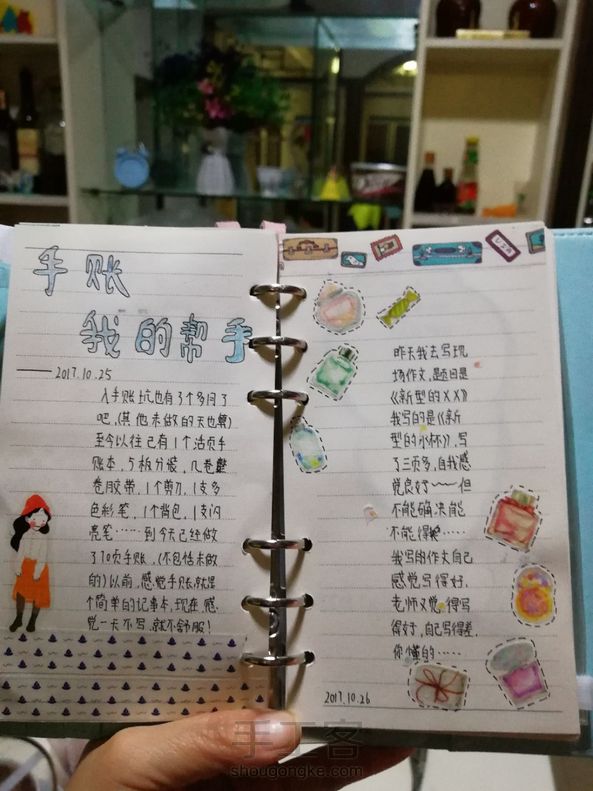 手账
我的帮手
2017.10.25
入手账坑也有3个多月了
吧,(其他未做的天也算)
至今以往已有1个活页手
账本,5板分装,几卷
卷胶带,1个剪刀,1支多
色彩笔,1个背包,1支闪
亮笔……到今天已经做
了70页手账,(不包括未做
的)以前,感觉手账就是
个简单的记事本,现在感
觉一天不写,就不舒服!
昨天我去写现
场作文,题目是
《新型的XX》
我写的是《新
型的水杯》,写
了三页多,自我感
觉良好~~但
不能确决能
不能得……
我写的作文自己
感觉写得好,
老师又觉得写
得好,自己写得差,
你懂的……
2017.10.26
手工客
shougongke.com